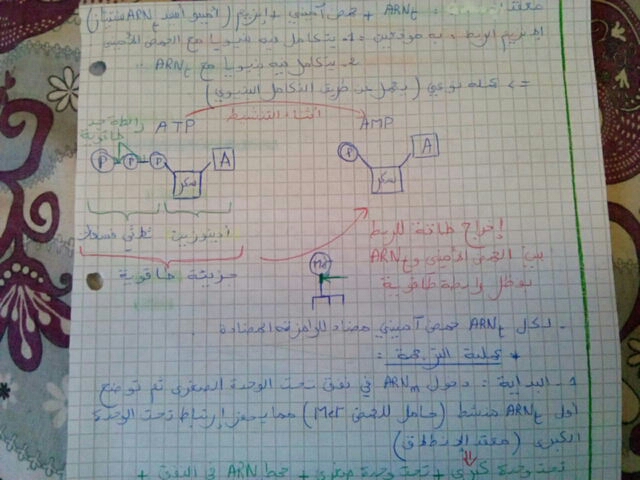 معقد: ARNt + حمض أميني + إنزيم (أمينو أسيل ARNt سنتيتاز)
الإنزيم الربط له موقعين = 1- يتكامل فيه بنيويا مع الحمض الأميني
2- يتكامل فيه بنيويا مع ARNt
=> عمله نوعي (يعمل عن طريق التكامل البنيوي)
أثناء التنشيط
رابطة جد
طاقوية
ATP
AMP
P P P سكر A
P سكر A
أدينوزين
ثلاثي فسفات
جزيئة طاقوية
إخراج طاقة للربط
بين الحمض الأميني و ARNt
طاقوية
Met
- لكل ARNt حمض أميني مضاد للرامزة المضادة
* عملية الترجمة:
1- البداية: دخول ARNm في نفق تحت الوحدة الصغرى ثم توضع
أول ARNt منشط (حامل للحمض Met) مما يحفز إرتباط تحت الوحدة
الكبرى (معقد الإنطلاق)
تحت وحدة كبرى + تحت وحدة صغرى + خيط ARN في النفق +